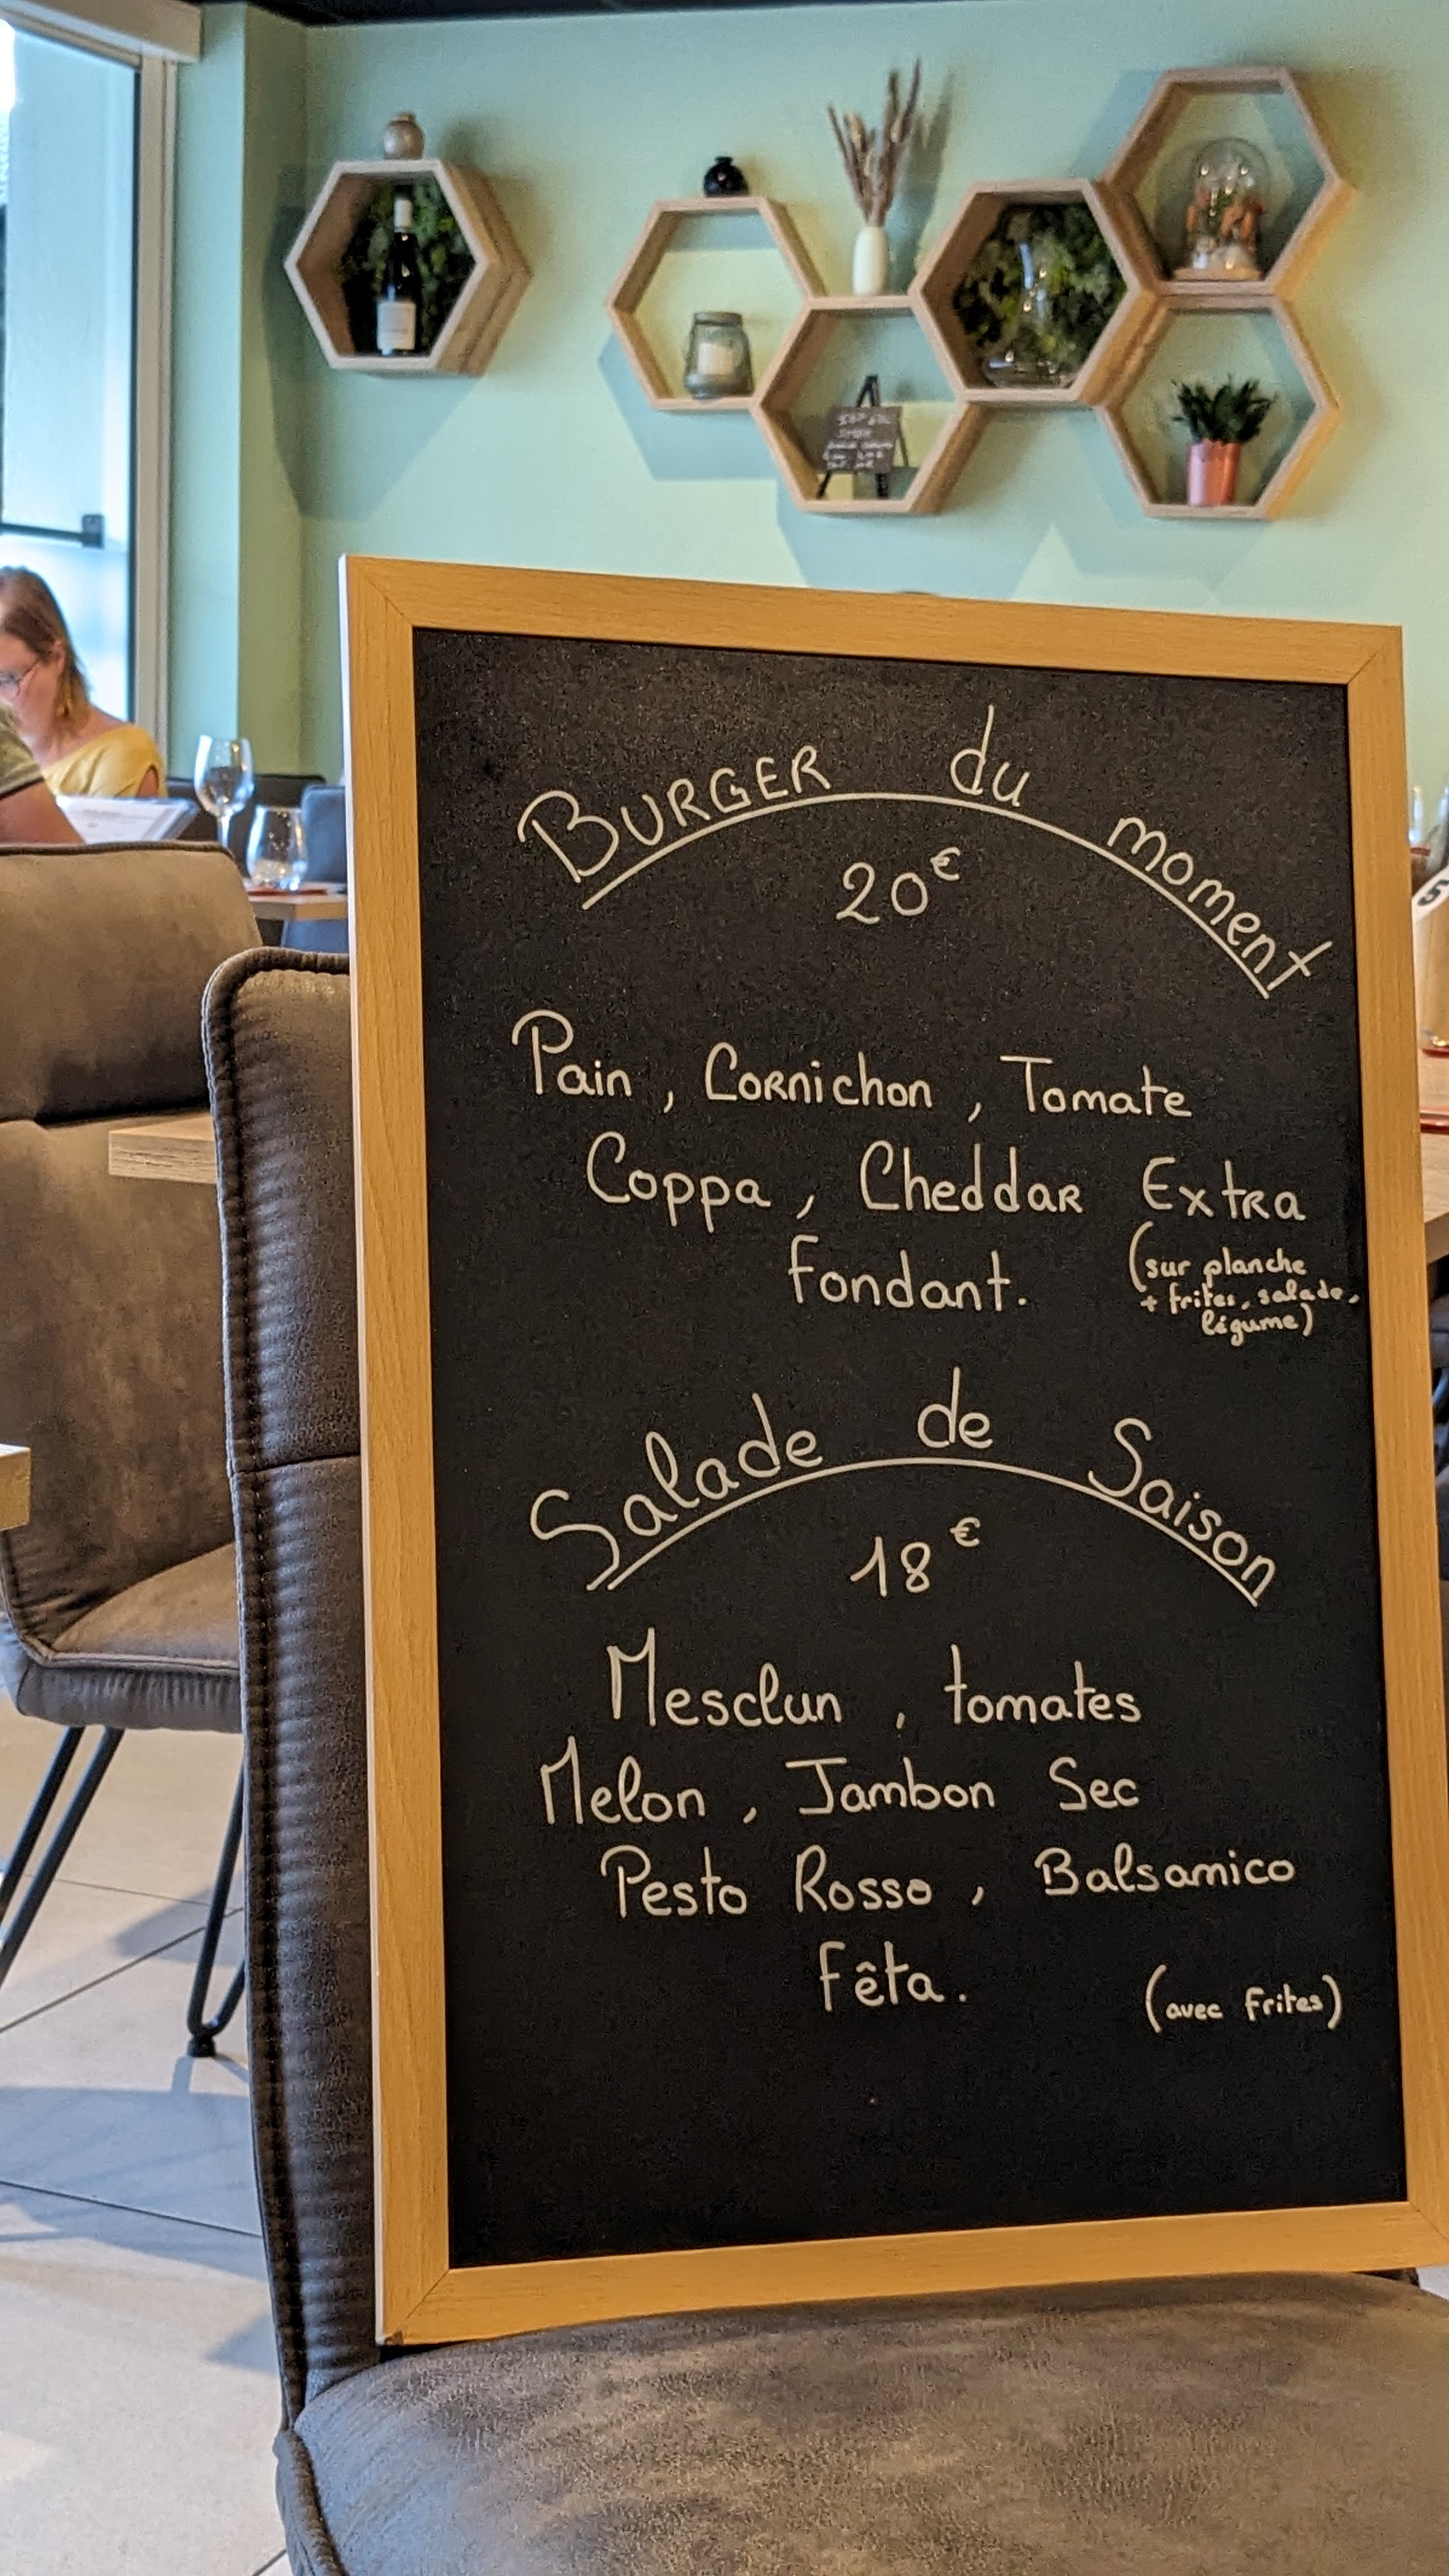 BURGER du moment
20€
Pain, Cornichon, Tomate
Coppa, Cheddar Extra
fondant.
(sur planche
+ frites, salade,
légume)
Salade de Saison
18€
Mesclun, tomates
Melon, Jambon Sec
Pesto Rosso, Balsamico
fêta.
(avec frites)
5